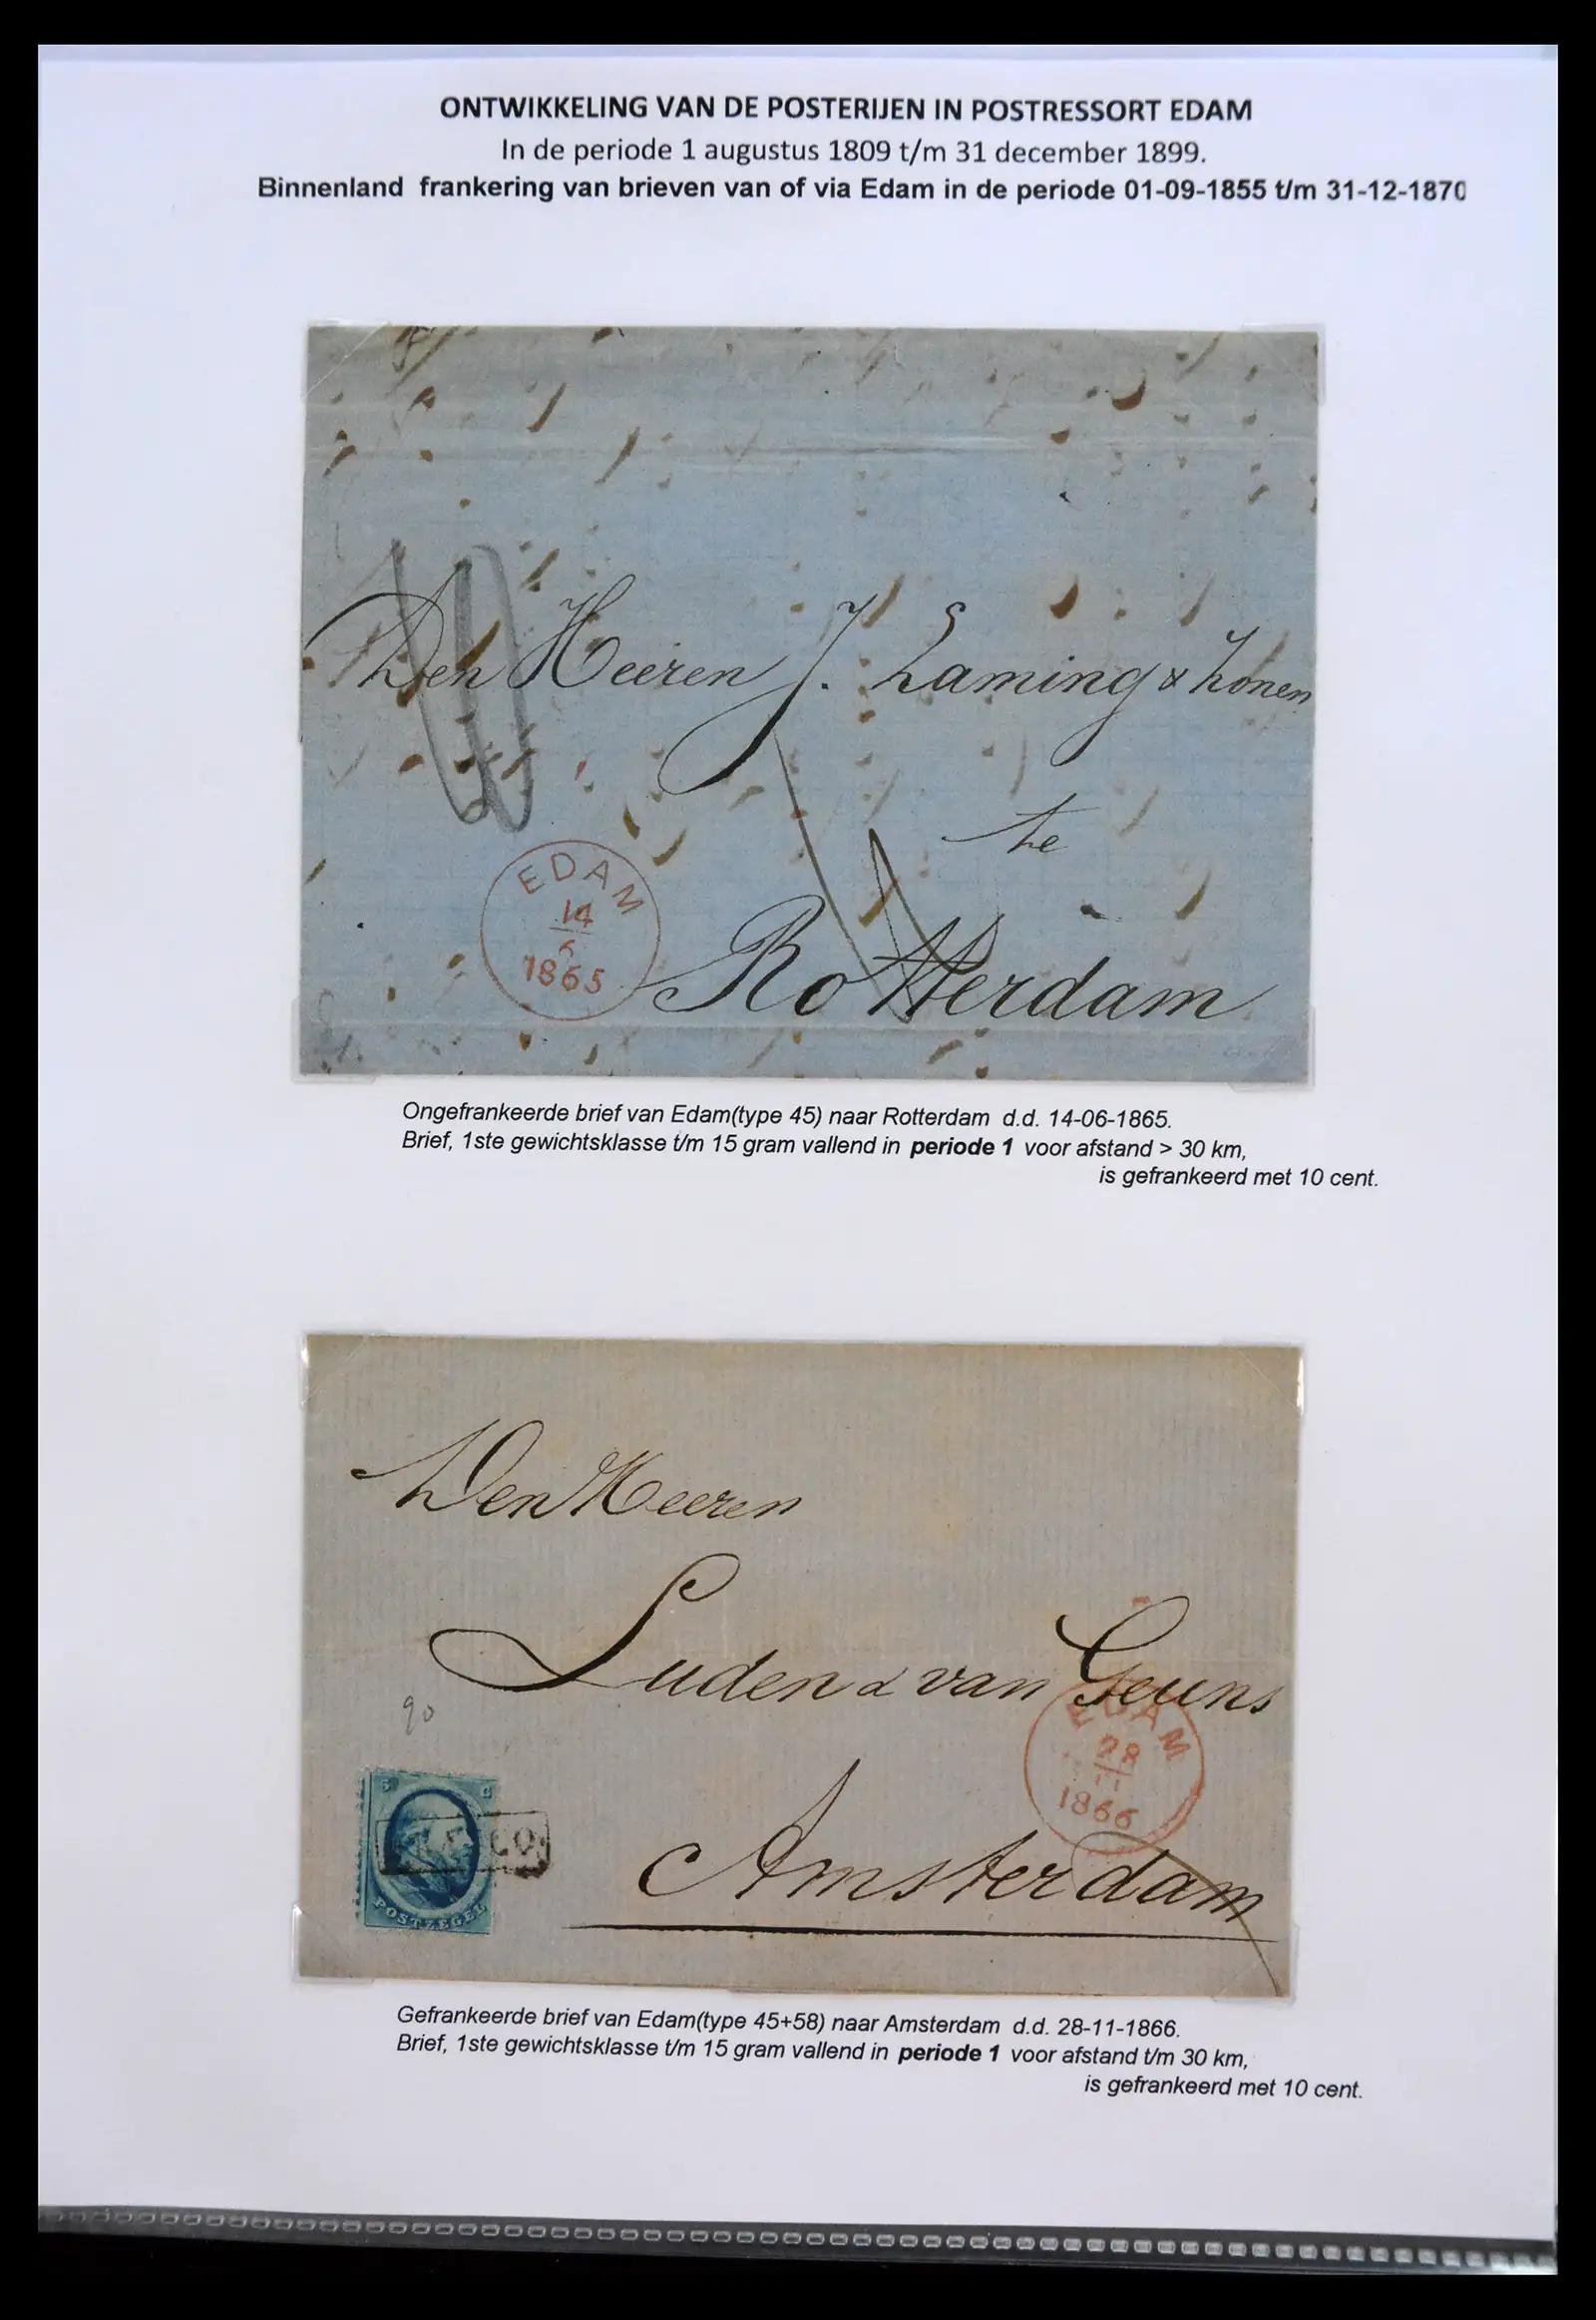 ONTWIKKELING VAN DE POSTERIJEN IN POSTRESSORT EDAM
In de periode 1 augustus 1809 t/m 31 december 1899.
Binnenland frankering van brieven van of via Edam in de periode 01-09-1855 t/m 31-12-1870
10
Den Heeren J. Laming & Zonen
te
EDAM
14
6
1865
Rotterdam
Ongefrankeerde brief van Edam(type 45) naar Rotterdam d.d. 14-06-1865.
Brief, 1ste gewichtsklasse t/m 15 gram vallend in periode 1 voor afstand > 30 km,
is gefrankeerd met 10 cent.
Den Heeren
Luden & van Geuns
90
EDAM
28
11
1866
5 C
FRANCO
POSTZEGEL
Amsterdam
Gefrankeerde brief van Edam(type 45+58) naar Amsterdam d.d. 28-11-1866.
Brief, 1ste gewichtsklasse t/m 15 gram vallend in periode 1 voor afstand t/m 30 km,
is gefrankeerd met 10 cent.